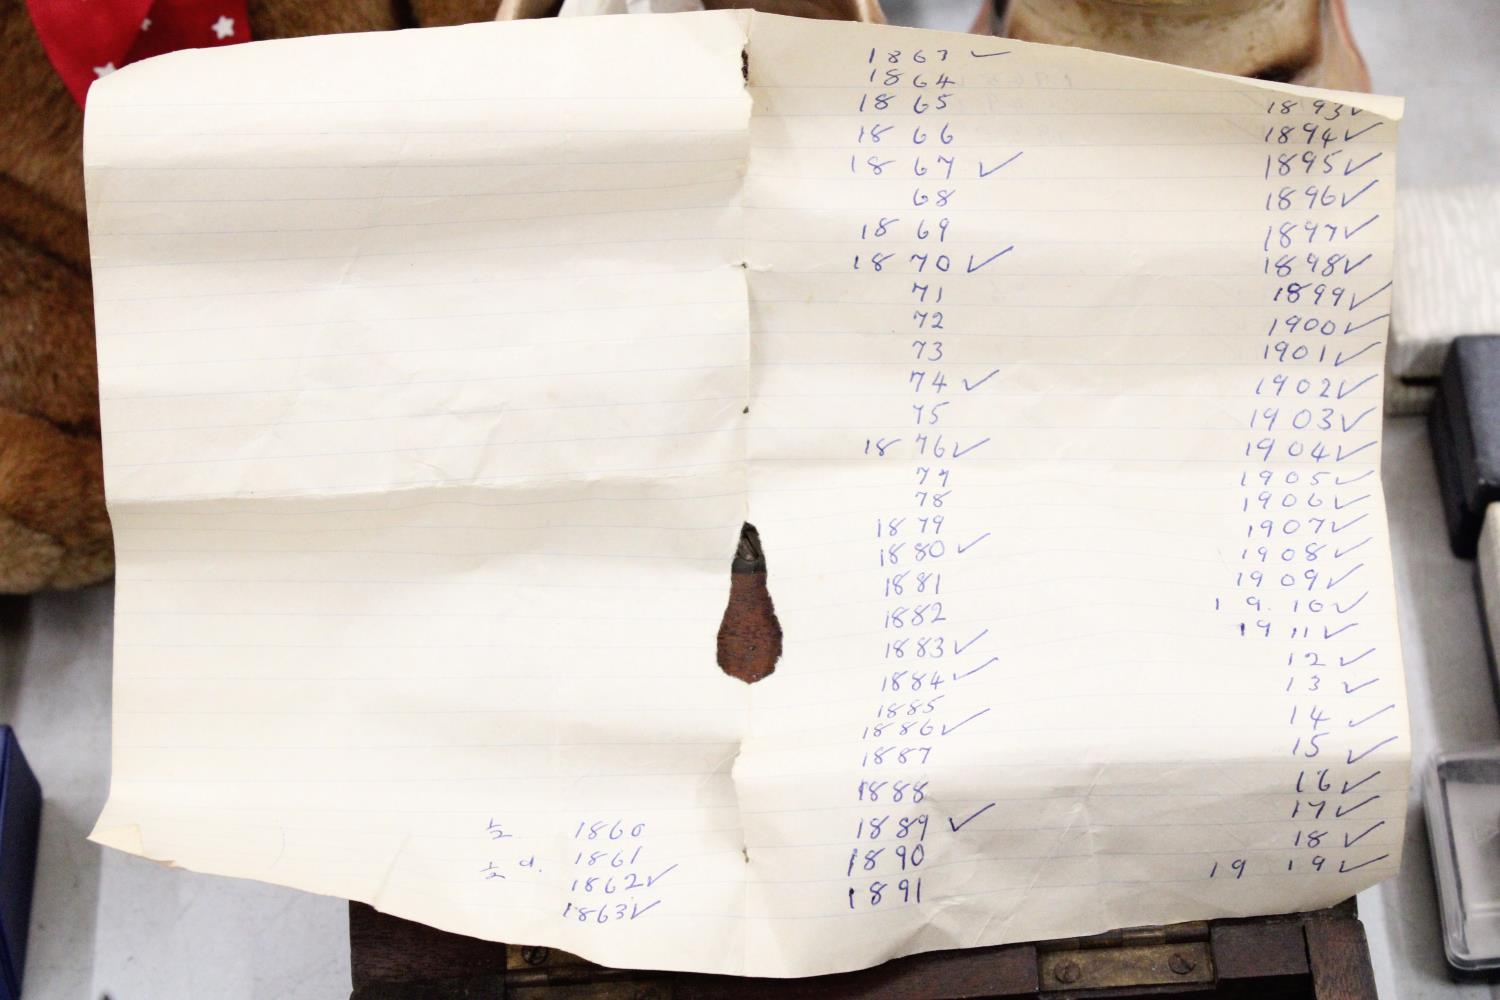 ½ 1860
½ d. 1861
1862✓
1863✓
1863 ✓
1864
1865
1866
1867 ✓
68
1869
1870 ✓
71
72
73
74 ✓
75
1876✓
77
78
1879
1880 ✓
1881
1882
1883✓
1884✓
1885
1886✓
1887
1888
1889 ✓
1890
1891
1893✓
1894✓
1895✓
1896✓
1897✓
1898✓
1899✓
1900✓
1901✓
1902✓
1903✓
1904✓
1905✓
1906✓
1907✓
1908✓
1909✓
19.10✓
1911✓
12 ✓
13 ✓
14 ✓
15 ✓
16✓
17✓
18✓
19 19✓